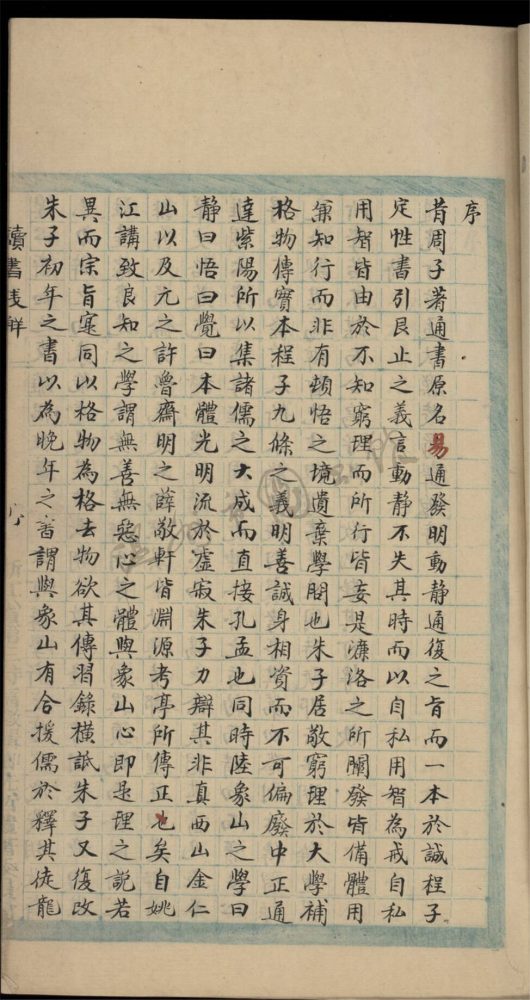 序
昔周子著通書原名易通發明動靜通復之旨而一本於誠程子
定性書引艮止之義言動靜不失其時而以自私用智為戒自私
用智皆由於不知窮理而所行皆妄是濂洛之所闡發皆備體用
兼知行而非有頓悟之境遺棄學問也朱子居敬窮理於大學補
格物傳實本程子九條之義明善誠身相資而不可偏廢中正通
達紫陽所以集諸儒之大成而直接孔孟也同時陸象山之學曰
静曰悟曰覺曰本體光明流於虛寂朱子力辯其非真西山金仁
山以及元之許魯齋明之薛敬軒皆淵源考亭所傳正也矣自姚
江講致良知之學謂無善無惡心之體與象山心即是理之説若
異而宗旨寔同以格物為格去物欲其傳習錄橫詆朱子又復改
朱子初年之書以為晚年之書謂與象山有合援儒於釋其徒龍
讀書淺解
序